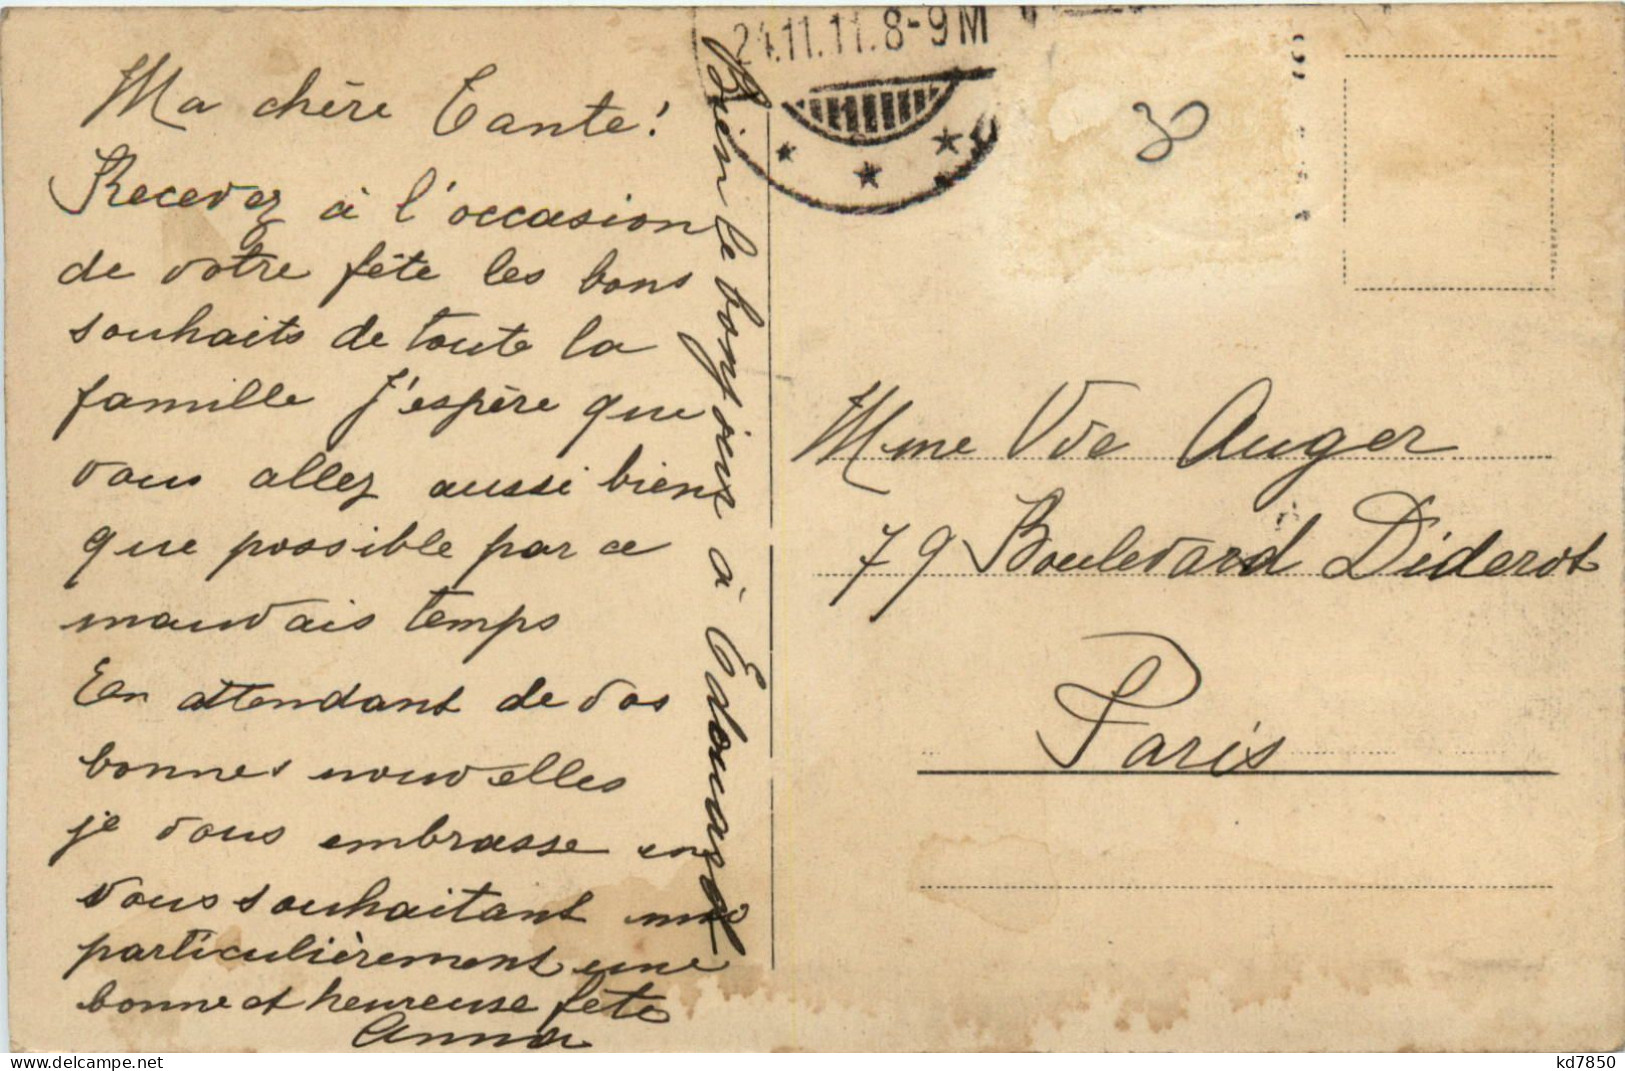 Ma chère Tante!
Recevez à l'occasion
de votre fête les bons
souhaits de toute la
famille J'espère que
vous allez aussi bien
que possible par ce
mauvais temps
En attendant de vos
bonnes nouvelles
je vous embrasse en
vous souhaitant
particulièrement une
bonne et heureuse fête
Anna
Bien le bonjour à Edouard
24.11.11.8-9M
30
Mme Vve Auger
79 Boulevard Diderot
Paris
kd7850